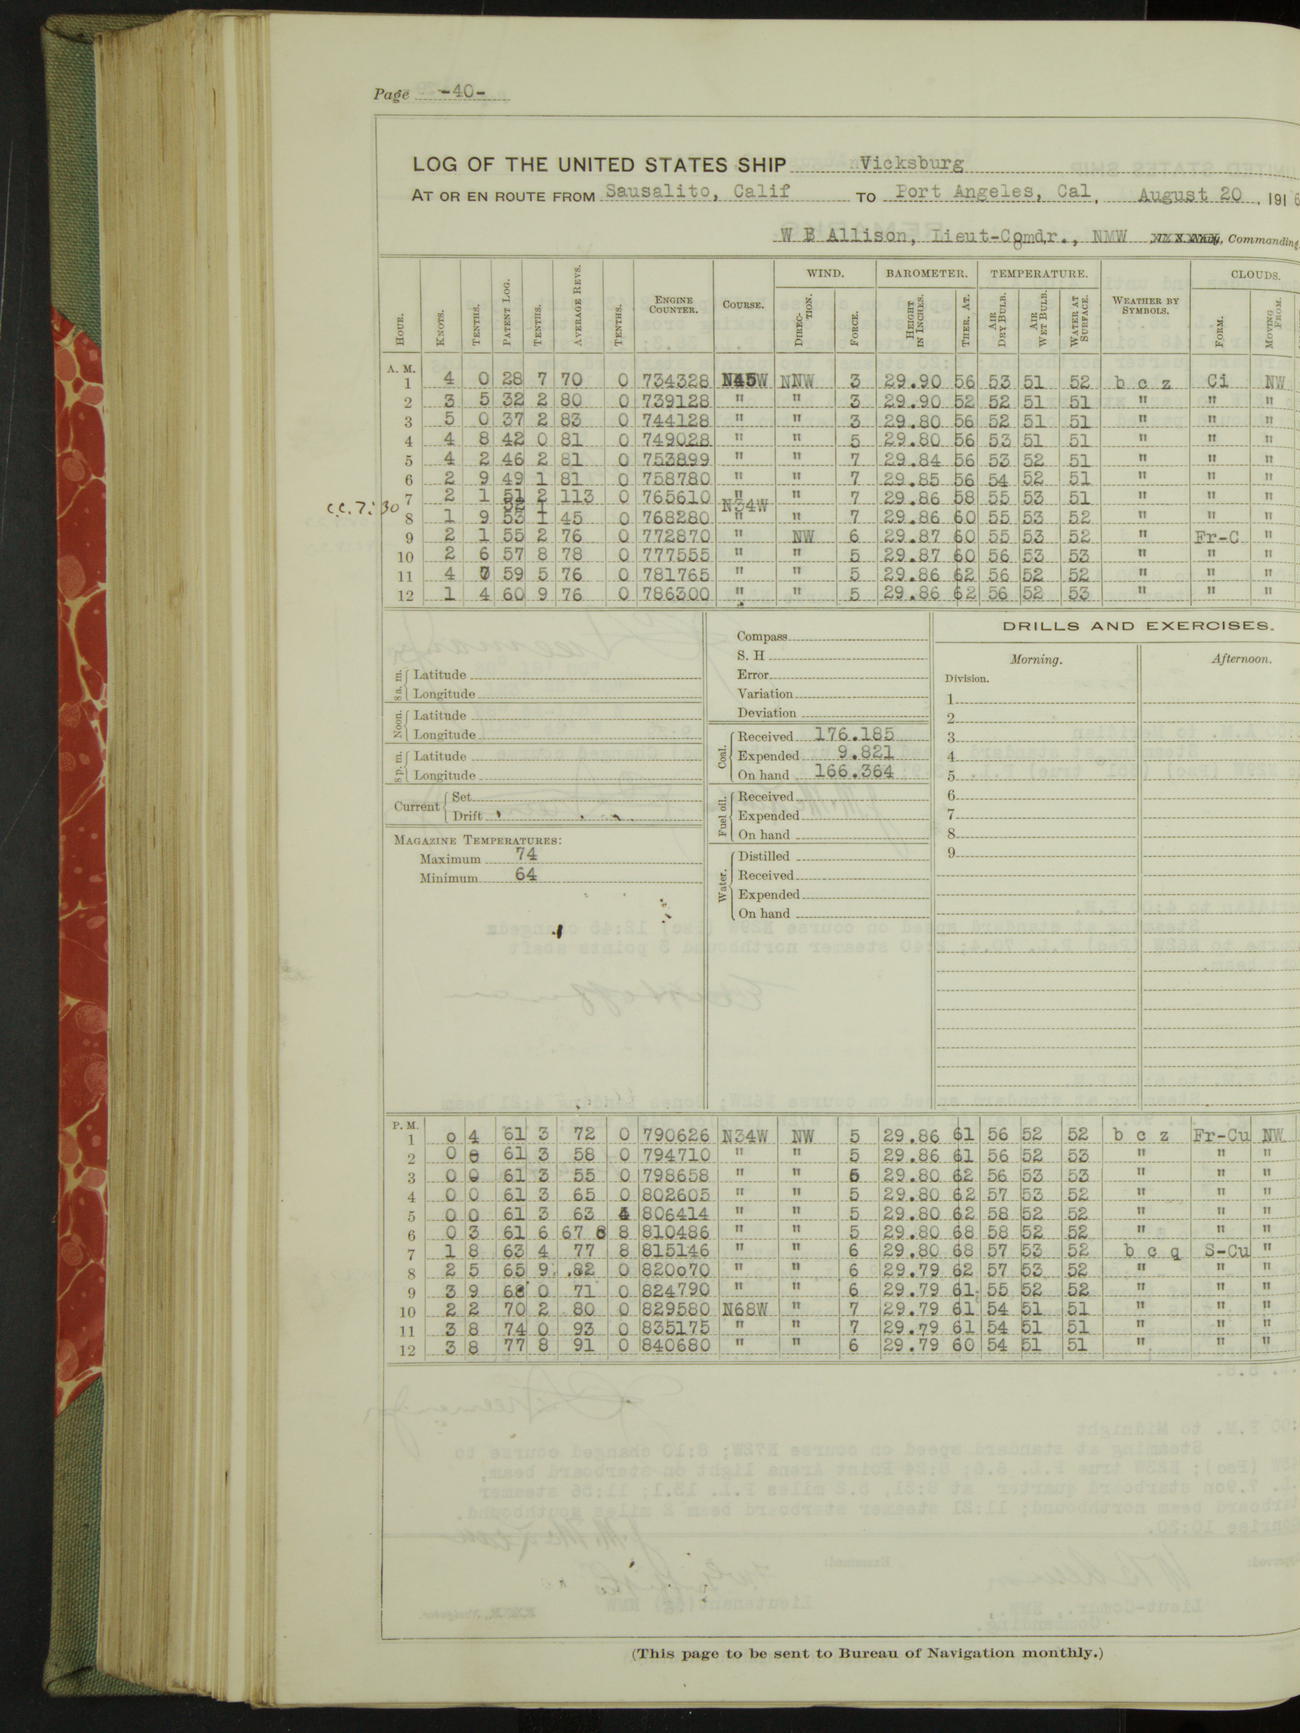 Page -40-
LOG OF THE UNITED STATES SHIP Vicksburg
AT OR EN ROUTE FROM Sausalito, Calif TO Port Angeles, Cal, August 20, 1916
W B Allison, Lieut-Comdr., NMW, Commanding
HOUR. KNOTS. TENTHS. PATENT LOG. TENTHS. AVERAGE REVS. TENTHS. ENGINE COUNTER. COURSE. WIND. DIRECTION. FORCE. BAROMETER. HEIGHT IN INCHES. THER. AT. TEMPERATURE. AIR DRY BULB. AIR WET BULB. WATER AT SURFACE. WEATHER BY SYMBOLS. CLOUDS. FORM. MOVING FROM.
A. M.
1 4 0 28 7 70 0 734328 N45W NNW 3 29.90 56 53 51 52 b c z Ci NW
2 3 5 32 2 80 0 739128 " " 3 29.90 52 52 51 51 " " "
3 5 0 37 2 83 0 744128 " " 3 29.80 56 52 51 51 " " "
4 4 8 42 0 81 0 749028 " " 5 29.80 56 53 51 51 " " "
5 4 2 46 2 81 0 753899 " " 7 29.84 56 53 52 51 " " "
6 2 9 49 1 81 0 758780 " " 7 29.85 56 54 52 51 " " "
7 2 1 51 2 113 0 765610 " " 7 29.86 58 55 53 51 " " "
c.c. 7:30 52 1 N34W
8 1 9 53 1 45 0 768280 " " 7 29.86 60 55 53 52 " " "
9 2 1 55 2 76 0 772870 " NW 6 29.87 60 55 53 52 " Fr-C "
10 2 6 57 8 78 0 777555 " " 5 29.87 60 56 53 53 " " "
11 4 59 5 76 0 781765 " " 5 29.86 62 56 52 52 " " "
12 1 4 60 9 76 0 786300 " " 5 29.86 62 56 52 53 " " "
8 a. m. Latitude
Longitude
Noon. Latitude
Longitude
8 p. m. Latitude
Longitude
Current Set
Drift
MAGAZINE TEMPERATURES:
Maximum 74
Minimum 64
Compass
S. H
Error
Variation
Deviation
Coal. Received 176.185
Expended 9.821
On hand 166.364
Fuel oil. Received
Expended
On hand
Water. Distilled
Received
Expended
On hand
DRILLS AND EXERCISES.
Morning. Afternoon.
Division.
1
2
3
4
5
6
7
8
9
P. M.
1 0 4 61 3 72 0 790626 N34W NW 5 29.86 61 56 52 52 b c z Fr-Cu NW
2 0 0 61 3 58 0 794710 " " 5 29.86 61 56 52 53 " " "
3 0 0 61 3 55 0 798658 " " 5 29.80 62 56 53 53 " " "
4 0 0 61 3 65 0 802605 " " 5 29.80 62 57 53 52 " " "
5 0 0 61 3 63 4 806414 " " 5 29.80 62 58 52 52 " " "
6 0 3 61 6 67 8 8 810486 " " 5 29.80 68 58 52 52 " " "
7 1 8 63 4 77 8 815146 " " 6 29.80 68 57 53 52 b c q S-Cu "
8 2 5 65 9 82 0 820070 " " 6 29.79 62 57 53 52 " " "
9 3 9 68 0 71 0 824790 " " 6 29.79 61 55 52 52 " " "
10 2 2 70 2 80 0 829580 N68W " 7 29.79 61 54 51 51 " " "
11 3 8 74 0 93 0 835175 " " 7 29.79 61 54 51 51 " " "
12 3 8 77 8 91 0 840680 " " 6 29.79 60 54 51 51 " " "
(This page to be sent to Bureau of Navigation monthly.)